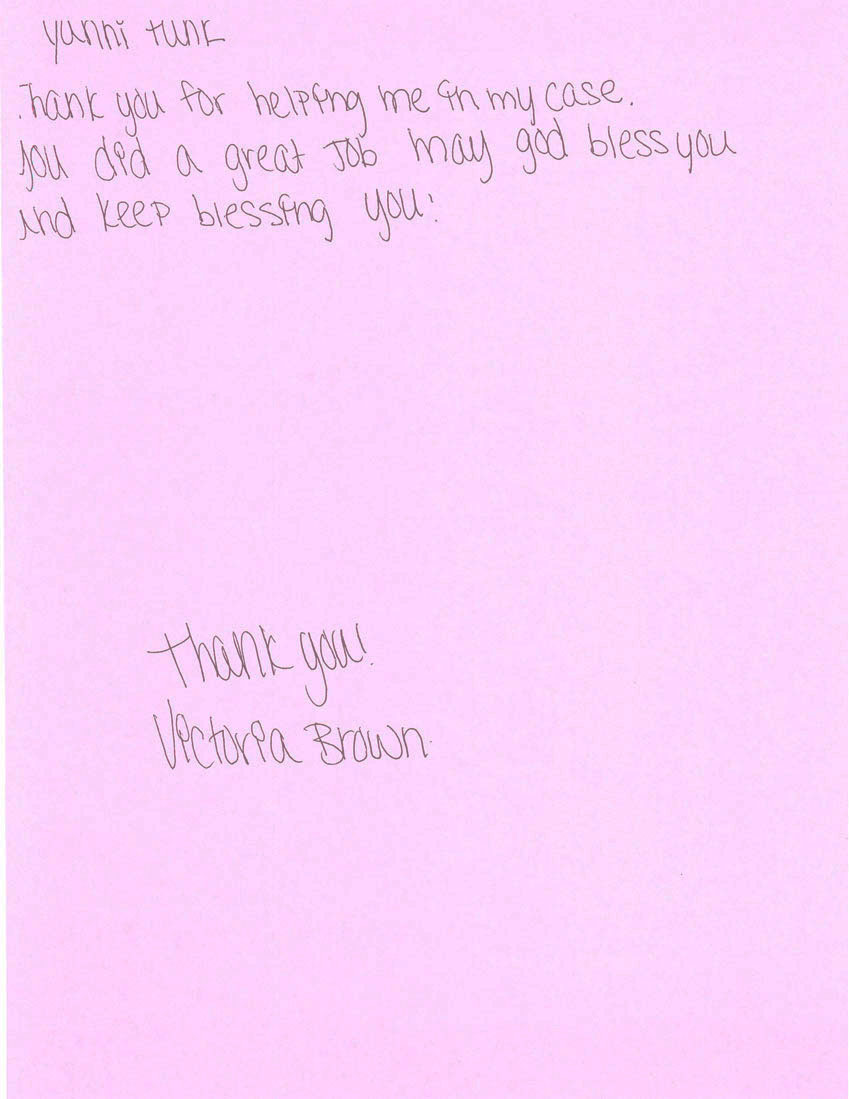 yunni tunk
Thank you for helping me in my case.
you did a great Job may god bless you
and keep blessing you!
Thank you!
Victoria Brown.